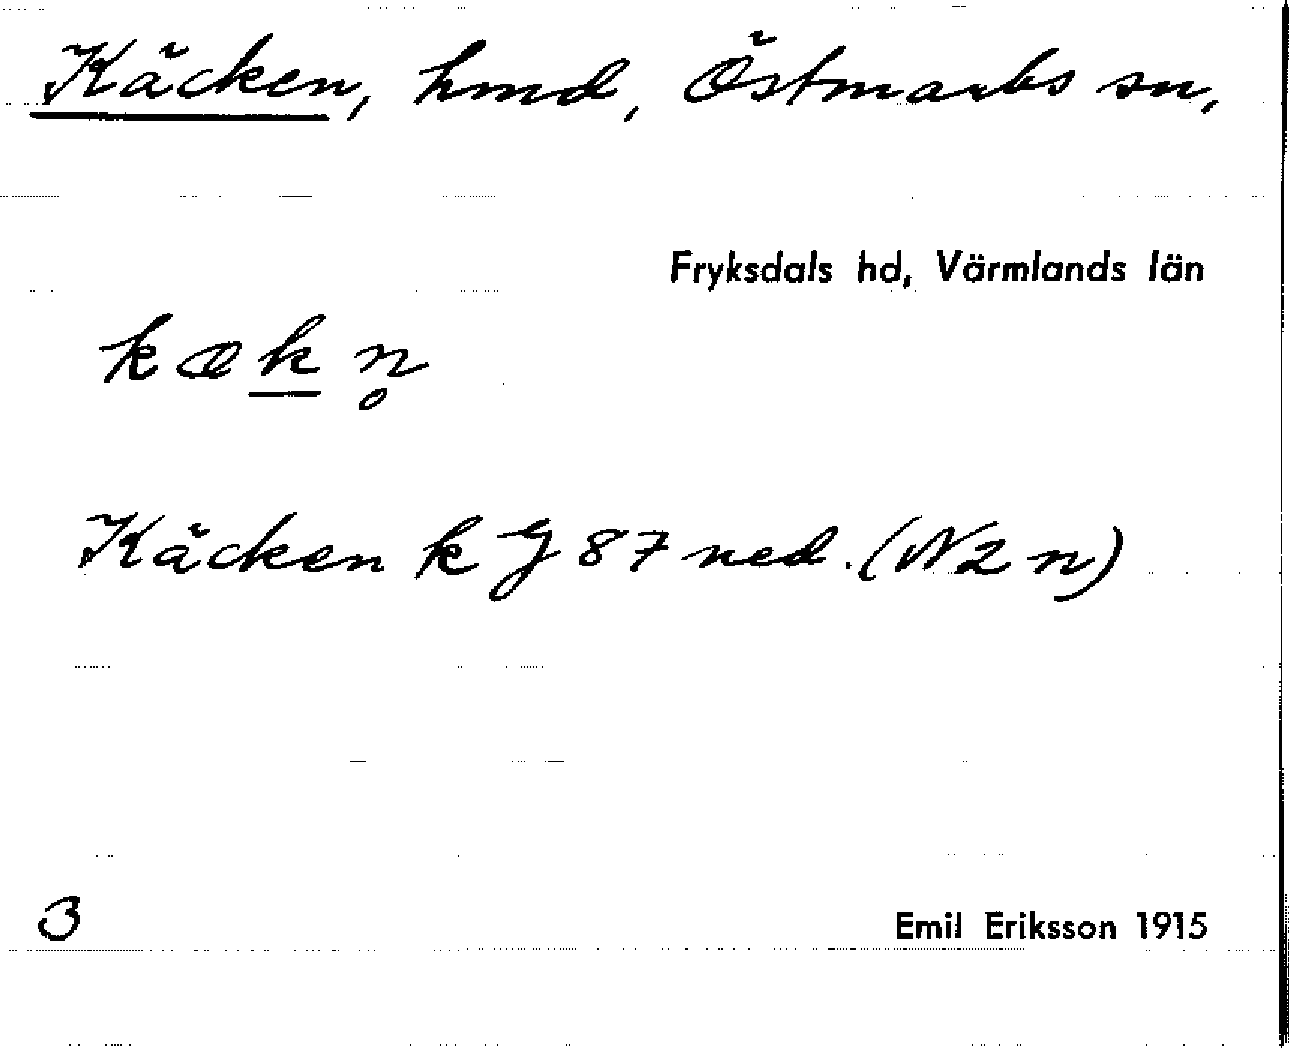 Käcken, hmd, Östmarks sn,
Fryksdals hd, Värmlands län
kækn̥
Käcken k J 87 ned. (N2n)
3
Emil Eriksson 1915